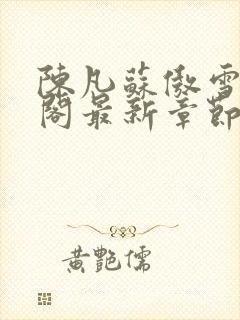 陳凡蘇傲雪
閣最新章節
黃艷儒